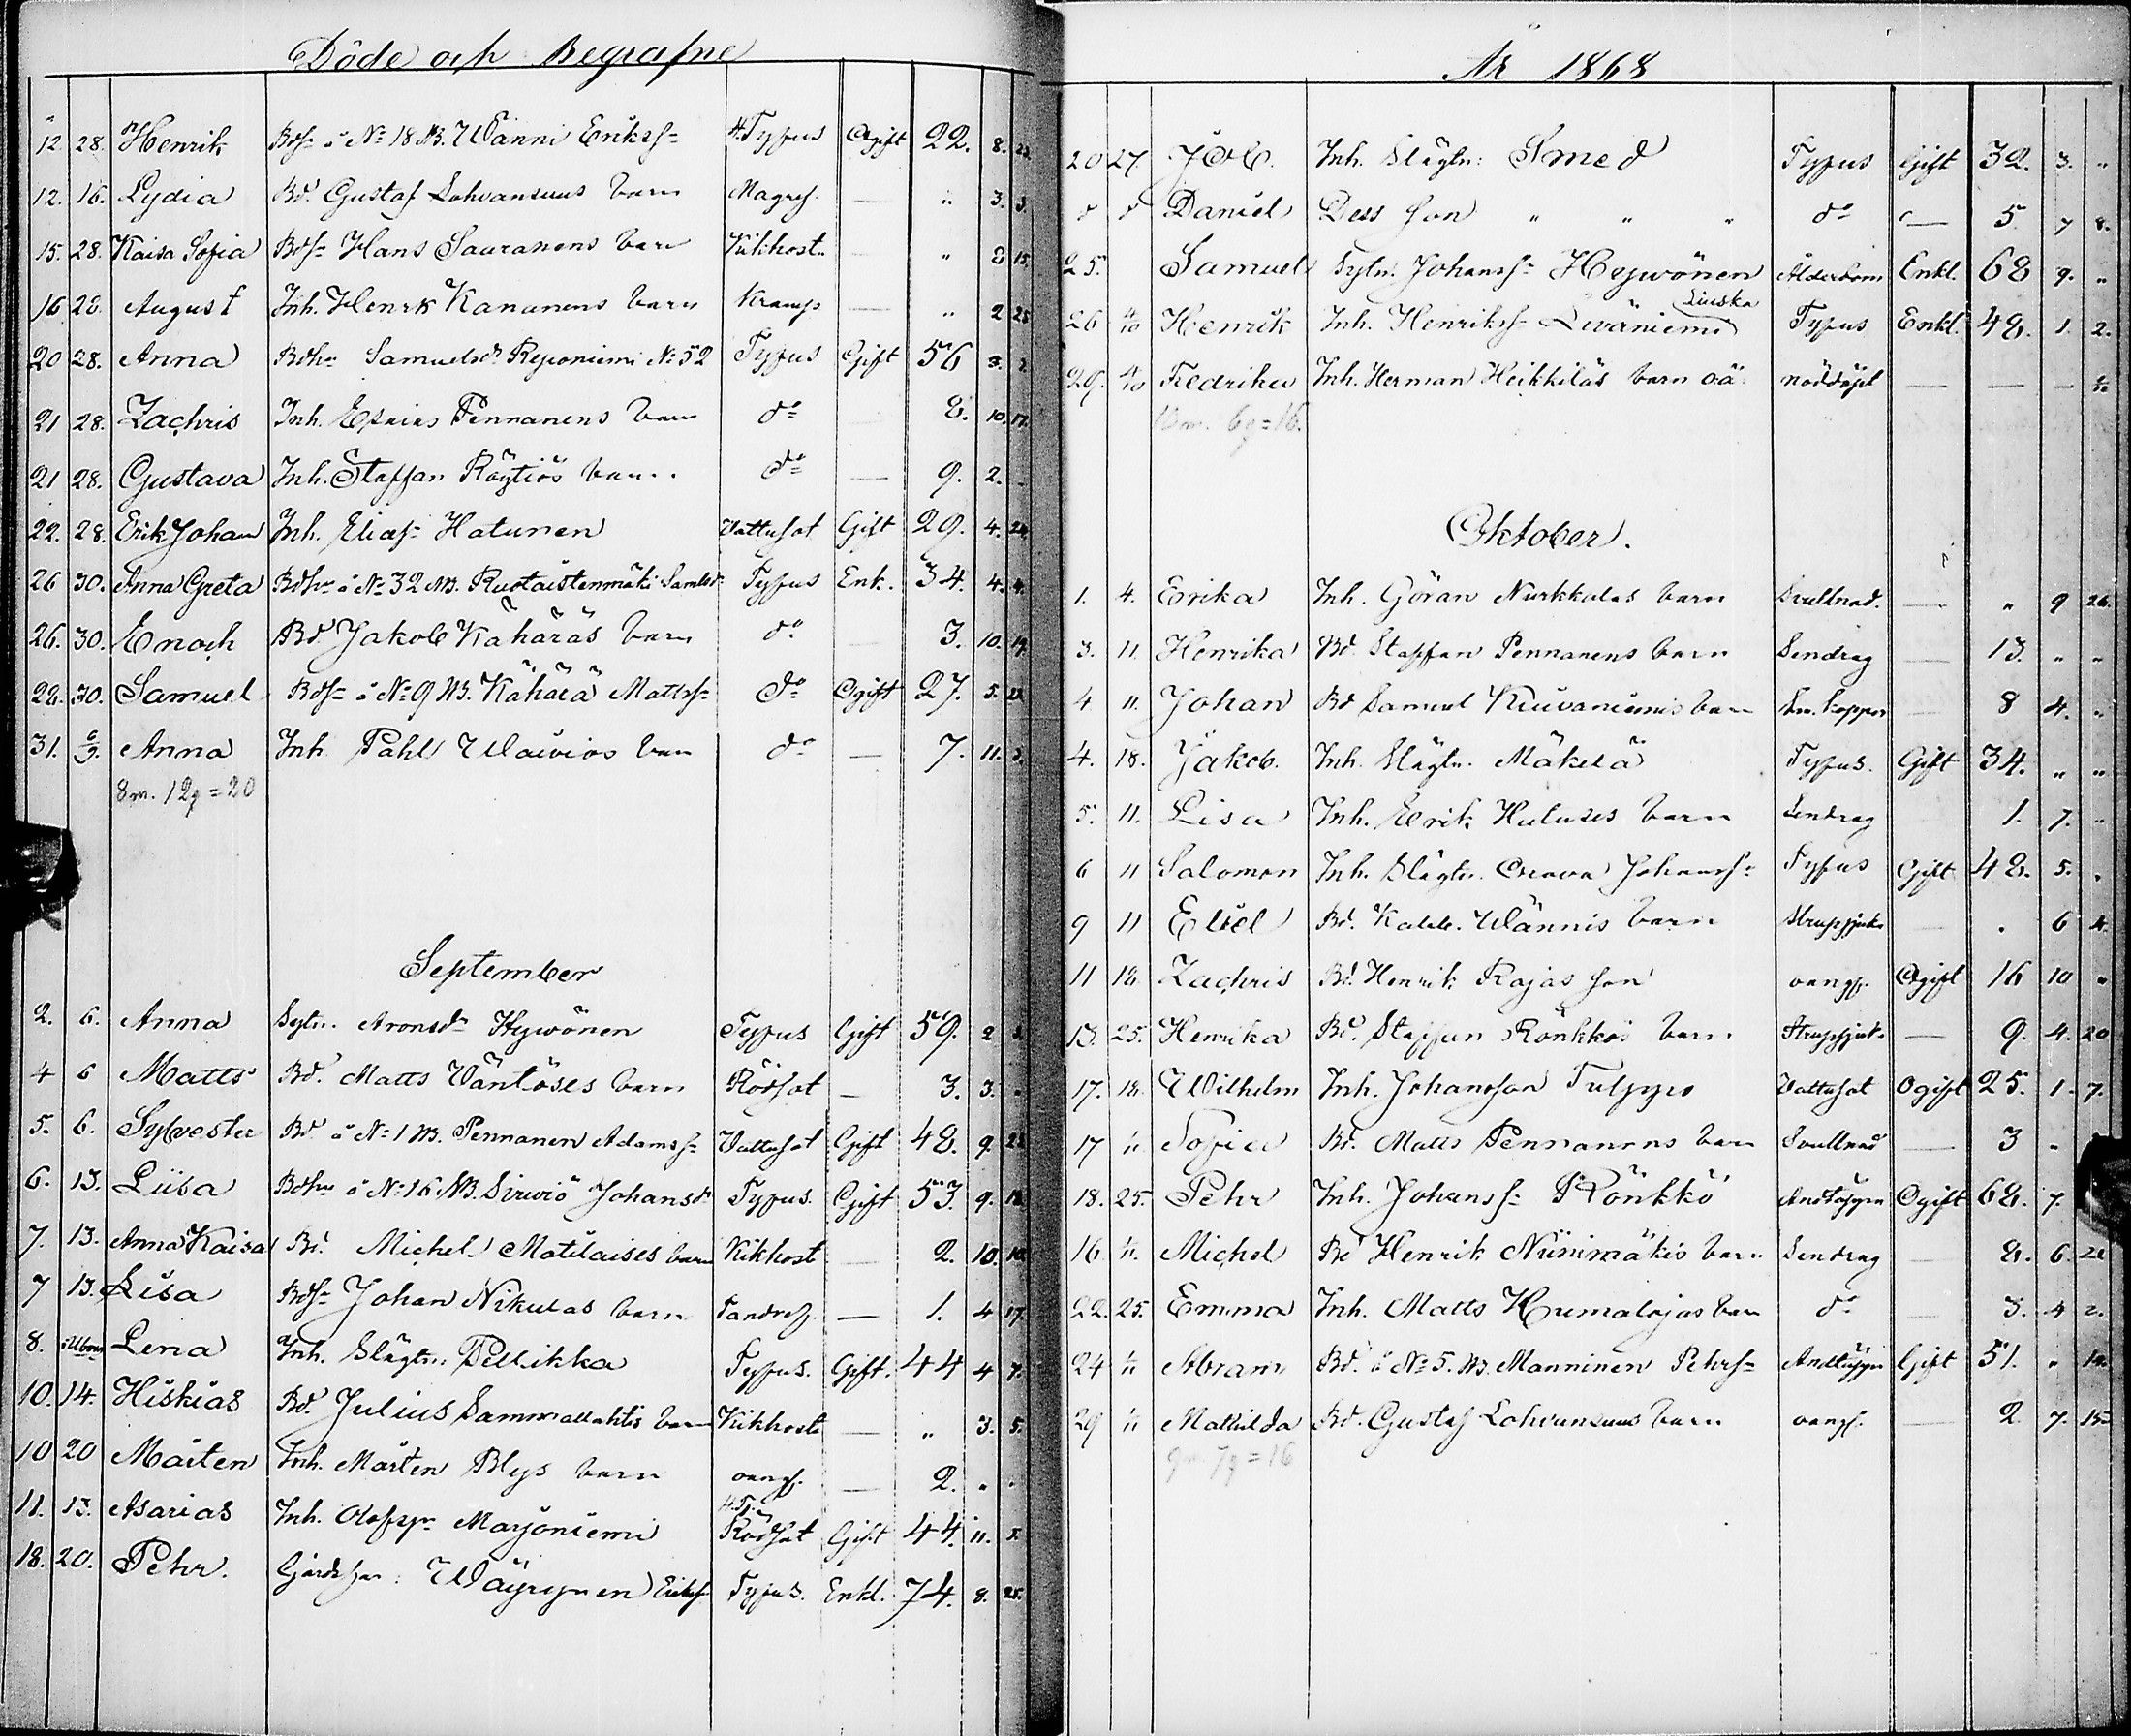 Döde och Begrafne
12. 28. Henrik Bds= å No 18 NB. Wänni Erikss= H.Typus Ogift 22. 8. 23.
12. 16. Lydia Bd. Gustaf Lohvansuus barn Magref. — " 3. 3.
15. 28. Kaisa Sofia Bds= Hans Sauranens barn Kikhosta — " 8 15.
16 28. August Inh. Henrk Kananens barn Kramp — " 2 25
20 28. Anna Bdh= Samuelsdr Reponiemi No 52 Typus Gift 56 3. 2.
21 28. Zachris Inh. Esaias Pennanens barn do 8. 10. 17.
21 28. Gustava Inh. Staffan Räytiös barn do — 9. 2.
22. 28. Erik Johan Inh. Eliass= Haturen Vattusot Gift 29. 4. 24.
26 30. Anna Greta Bdh= å No 32 NB. Ruotaistenmäki Samlsdr Typus Enk. 34. 4. 4.
26. 30. Enoch Bd Jakob Kähäräs barn do 3. 10. 19.
22. 30. Samuel Bds= å No 9 NB. Kähärä Mattss= do Ogift 27. 5. 22.
31. 6/9. Anna Inh Pahl Waivios barn do — 7. 11. 3.
8m. 12q = 20
September
2. 6. Anna Sytn. Aronsdr Hywönen Typus Gift 59. 2 3.
4 6 Matts Bd. Matts Väntöses barn Rödsot — 3. 3.
5. 6. Sylvester Bd å No 1 NB. Pennanen Adamss= Vattusot Gift 48. 9. 23.
6. 13. Liisa Bdh= å No 16 NB. Sirviö Johansdr Typus. Gift 53. 9. 18.
7. 13. Anna Kaisa Bd. Michel Matilaises barn Kikhost — 2. 10. 10.
7 13. Lisa Bds= Johan Nikulas barn Tandref. — 1. 4 17.
8. Lena Inh. Slägtn. Pellikka Typus. Gift. 44 4 7.
10. 14. Hiskias Bd. Julius Sammallahtis barn Kikhosta — " 3. 5.
10 20 Mårten Inh. Mårten Blys barn oangf. — 2. " "
11. 13. Asarias Inh. Olofss= Marjoniemi H.Ty. Rödsot Gift 44. 11. 5.
18. 20. Pehr. Gårdsfar: Wäyrynen Erikss= Typus. Enkl. 74. 8. 25.
År 1868
20 27. Job. Inh. Slägtn: Smed Typus Gift 32. 3. "
d d Daniel Dess son " " " do — 5. 7 8.
25. Samuel Sytn. Johanss= Hywönen Ålderdom Enkl. 68 9. "
Liuska
26 4/10 Henrik Inh. Henrikss= Leväniemi Typus Enkl. 48. 1. 2.
29. 4/10 Fredrika Inh. Herman Heikkiläs barn oä. nöddöpt — — — 1/2
10m. 6q = 16.
Oktober.
1. 4. Erika Inh. Göran Nurkkalas barn Svullnad. — " 9 26.
3. 11. Henrika Bd. Staffan Pennanens barn Sendrag — 13. " "
4 11. Johan Bd Samuel Kuivaniemis barn koppor — 8 4. "
4. 18. Jakob. Inh. Slägtn. Mäkelä Typus. Gift 34. " "
5. 11. Lisa Inh. Erik Huluses barn Sendrag 1. 7. "
6 11 Salomon Inh. Slägtn. Orava Johanss= Typus Gift 48. 5.
9 11 Eliel Bd. Kaleb. Wännis barn Strupsjuka — . 6 4
11 18. Zachris Bd. Henrik Rajas son oangf. Ogift 16 10 "
13. 25. Henrika Bd. Staffan Rönkkös barn Strupsjuk. — 9. 4. 20
17. 18. Wilhelm Inh. Johansson Tulppo Vattusot Ogift 25. 1. 7.
17 " Sofia Bd. Matts Pennanens barn Svullnad — 3 "
18. 25. Pehr Inh. Johanss= Rönkkö Andtäppa Ogift 68. 7.
16 " Michel Bd Henrik Niinimäkis barn Sendrag — 8. 6. 22
22. 25. Emma Inh. Matts Humalojas barn do 3. 4 2.
24 " Abram Bd. å No 5. NB. Manninen Pehrs= Andtäppa Gift 51. " 14.
29 " Mathilda Bd. Gustaf Lohvansuus barn oangf. — 2. 7. 15.
9m 7q = 16